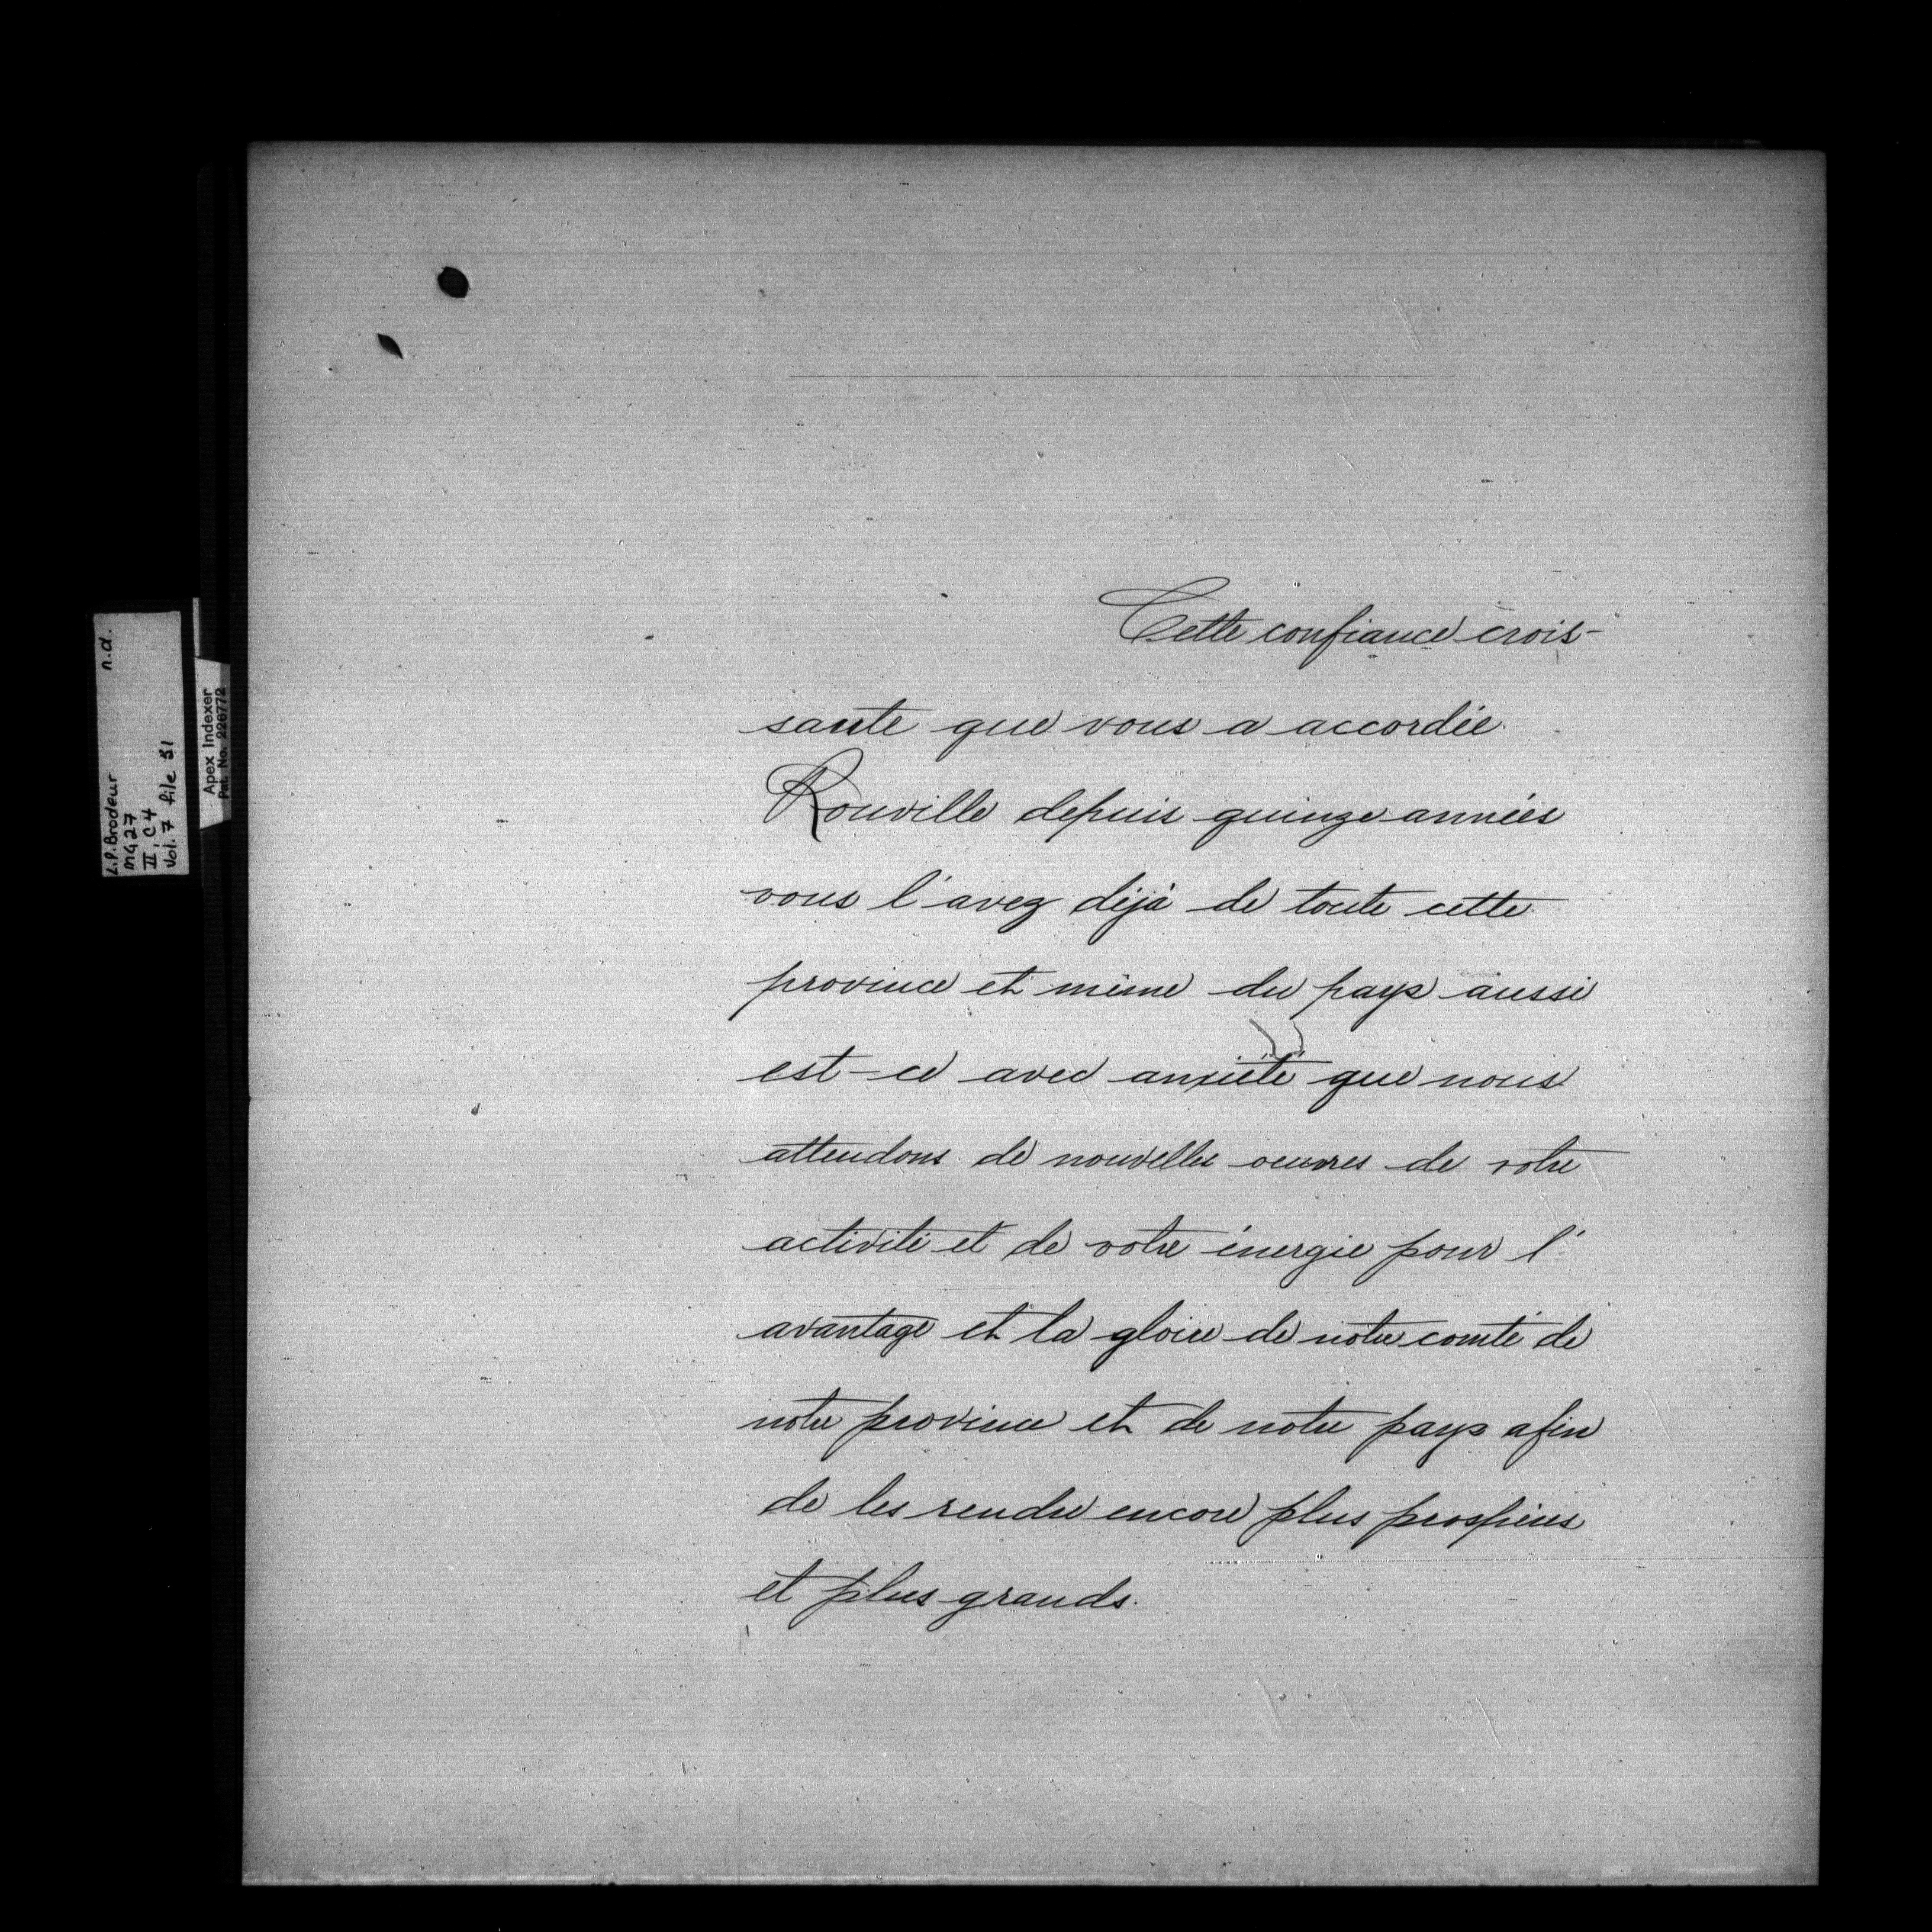 L.P. Brodeur n.d.
MG 27
II, C4
Vol. 7 file 51
Apex Indexer
Pat. No. 226772
Cette confiance crois-
sante que vous a accordée
Rouville depuis quinze années
vous l'avez déjà de toute cette
province et même du pays aussi
est-ce avec anxiété que nous
attendons de nouvelles oeuvres de votre
activité et de votre énergie pour l'
avantage et la gloire de notre comté de
notre province et de notre pays afin
de les rendre encore plus prospères
et plus grands.